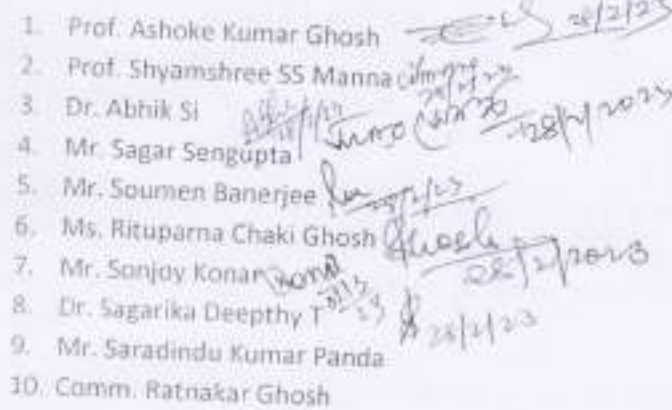 1. Prof. Ashoke Kumar Ghosh 28/2/23
2. Prof. Shyamshree SS Manna
3. Dr. Abhik Si
4. Mr. Sagar Sengupta 28/2/2023
5. Mr. Soumen Banerjee
6. Ms. Rituparna Chaki Ghosh Ghosh 28/2/2023
7. Mr. Sonjoy Konar
8. Dr. Sagarika Deepthy T 28/2/23
9. Mr. Saradindu Kumar Panda
10. Comm. Ratnakar Ghosh